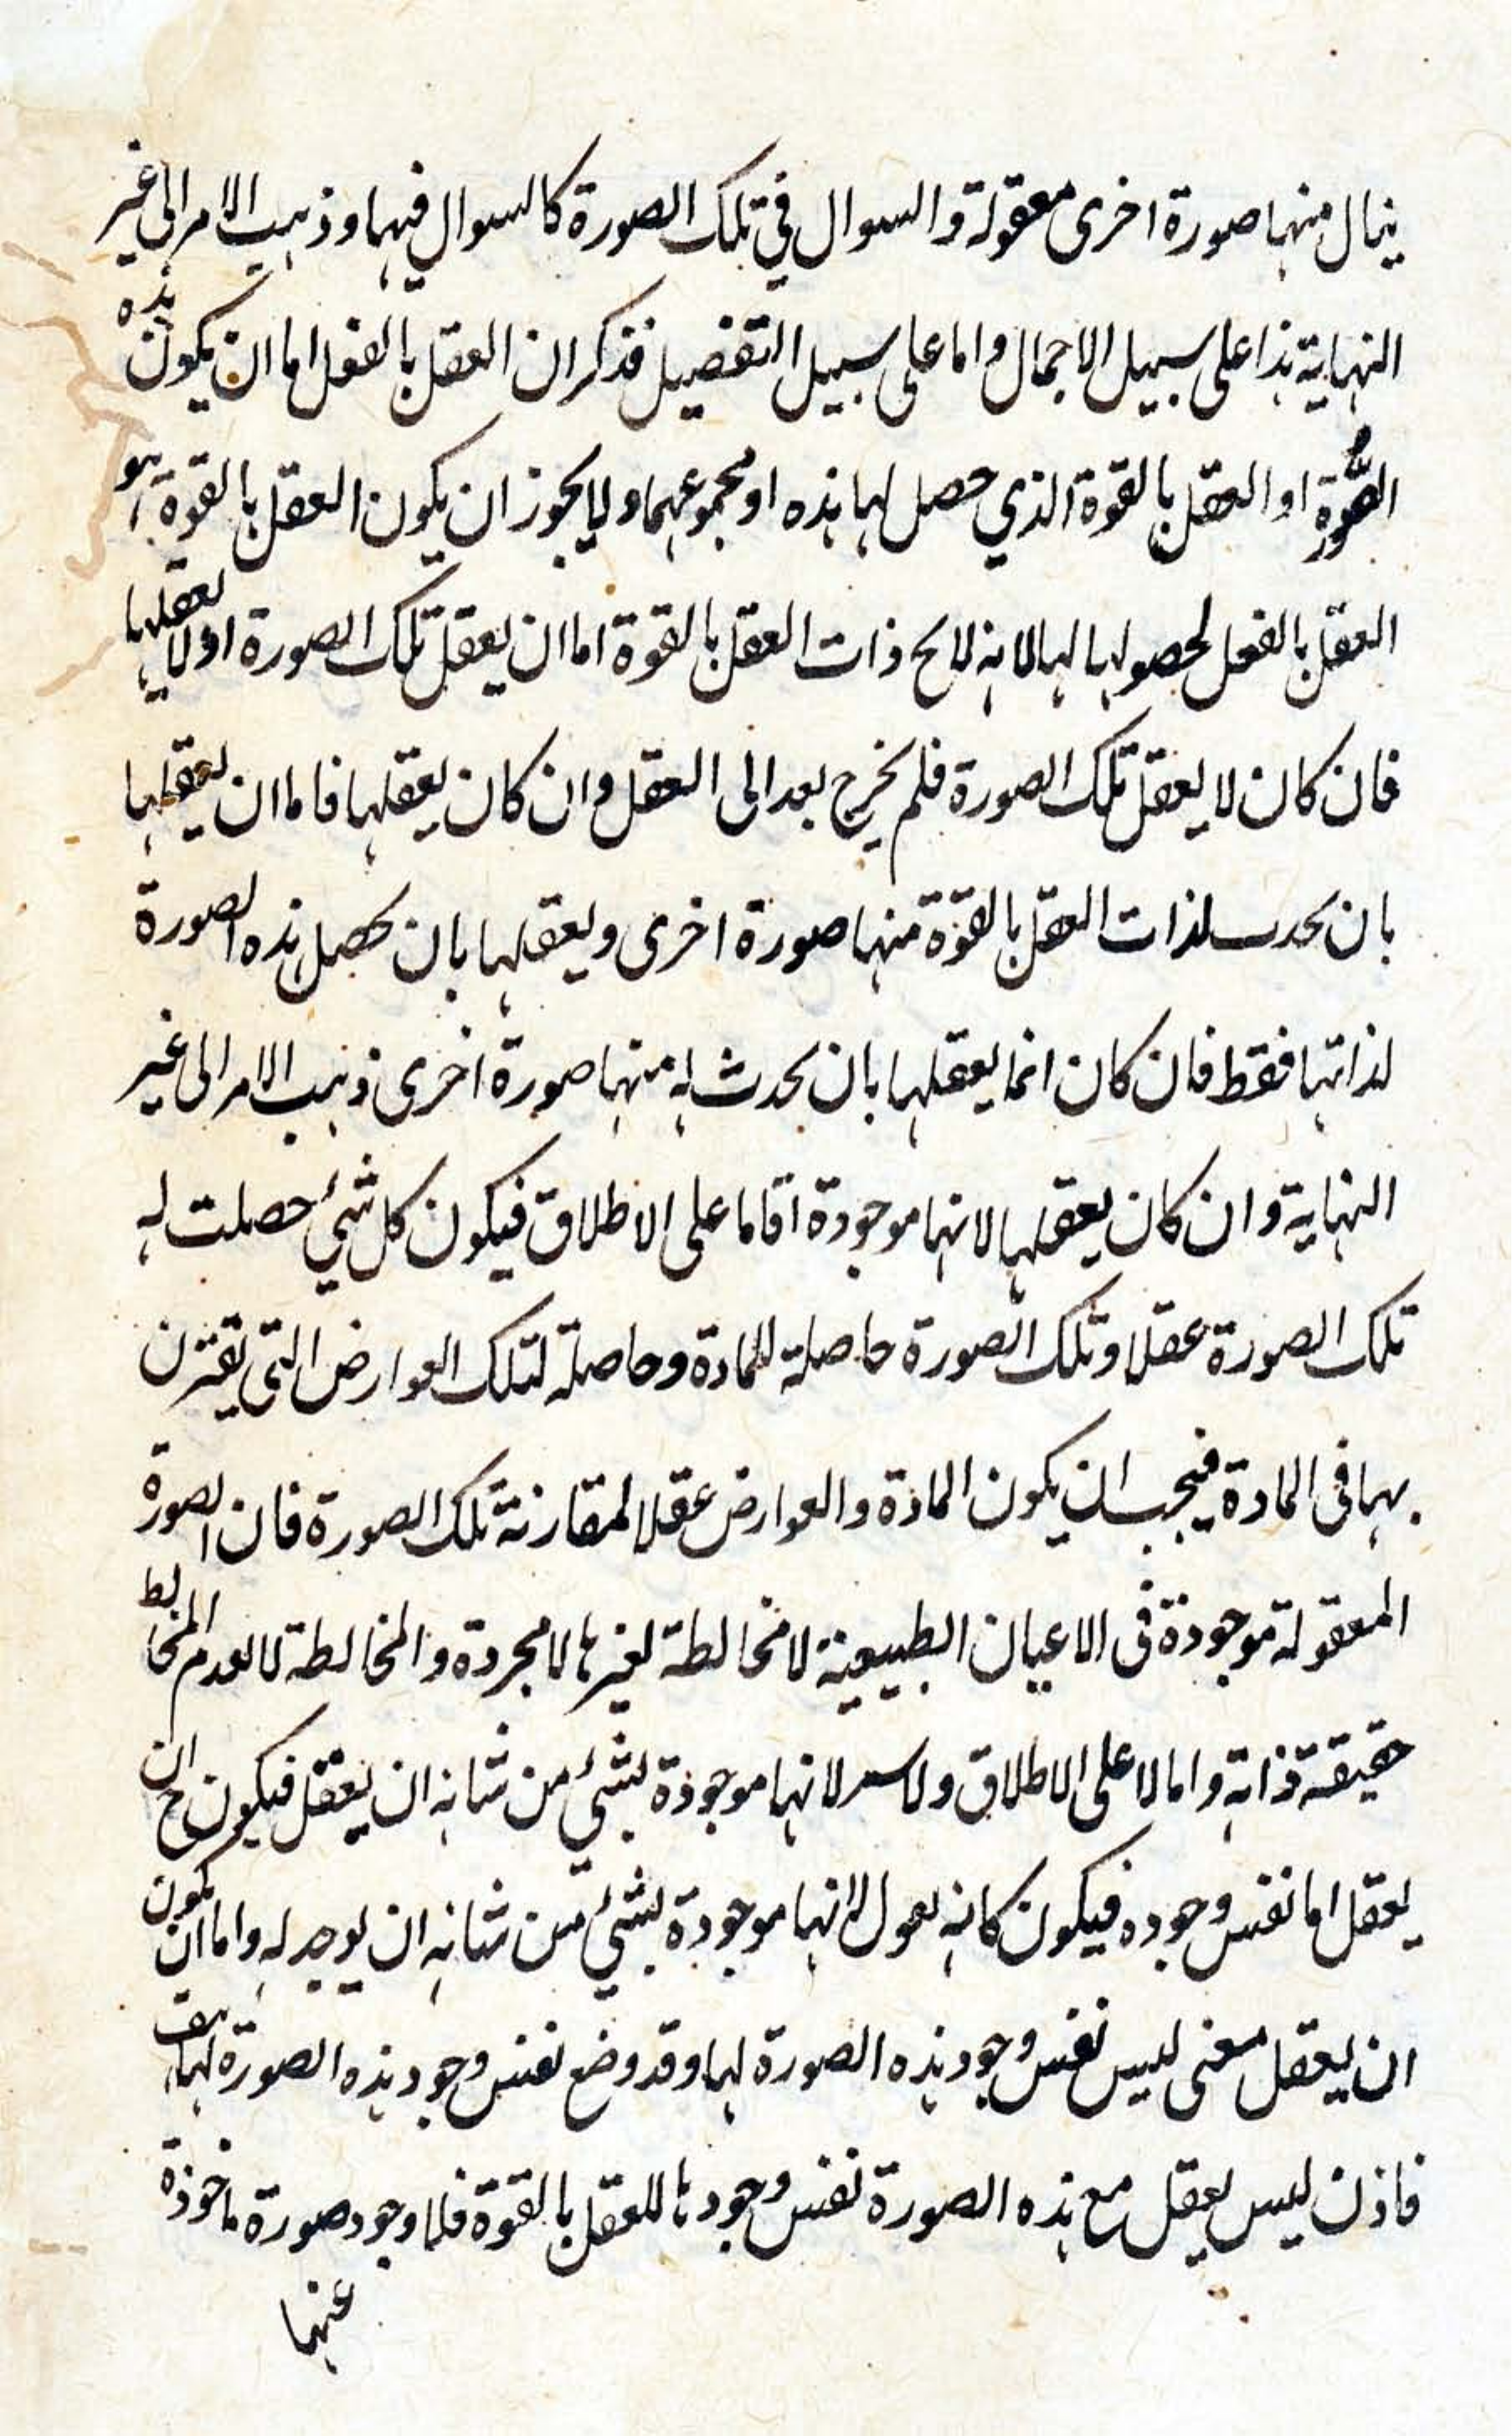 ينال منها صورة اخرى معقولة والسوال في تلك الصورة كالسوال فيها وذهب الامر الى غير
النهاية هذا على سبيل الاجمال واما على سبيل التفصيل فذكر ان العقل بالفعل اما ان يكون هذه
الصورة او العقل بالقوة الذي حصل لها هذه او مجموعهما ولا يجوز ان يكون العقل بالقوة هو
العقل بالفعل لحصولها لها لانه لا يخ ذات العقل بالقوة اما ان يعقل تلك الصورة او لا يعقلها
فان كان لا يعقل تلك الصورة فلم يخرج بعد الى العقل وان كان يعقلها فاما ان يعقلها
بان يحدث لذات العقل بالقوة منها صورة اخرى ويعقلها بان يحصل هذه الصورة
لذاتها فقط فان كان انما يعقلها بان يحدث له منها صورة اخرى ذهب الامر الى غير
النهاية وان كان يعقلها لانها موجودة اما على الاطلاق فيكون كل شئ حصلت له
تلك الصورة عقلا وتلك الصورة حاصلة للمادة وحاصلة لتلك العوارض التي تقترن
بها في المادة فيجب ان يكون المادة والعوارض عقلا لمقارنة تلك الصورة فان الصورة
المعقولة موجودة في الاعيان الطبيعية لا مخالطة لغيرها لا مجردة والمخالطة لا لعدم المخالط
حقيقة ذاته واما لا على الاطلاق لانها موجودة لشئ من شانه ان يعقل فيكون ح ان
يعقل اما نفس وجوده فيكون كانه يقول لانها موجودة لشئ من شانه ان يوجد له واما ان يكون
ان يعقل معنى ليس نفس وجود هذه الصورة لها وقد وضع نفس وجود هذه الصورة لها هف
فاذن ليس يعقل مع هذه الصورة نفس وجودها للعقل بالقوة فلا وجود صورة ماخوذة
عنها